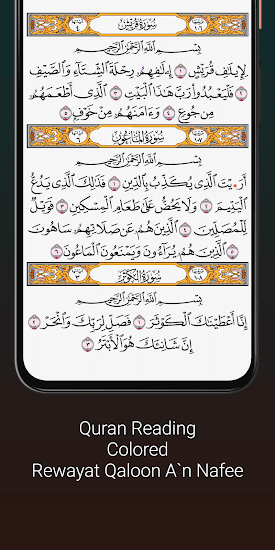 سُورَةُ قُرَيْشٍ
بِسْمِ اللَّهِ الرَّحْمَٰنِ الرَّحِيمِ
لِإِيلَٰفِ قُرَيْشٍ ١ إِۦلَٰفِهِمْ رِحْلَةَ الشِّتَآءِ وَالصَّيْفِ
٢ فَلْيَعْبُدُوا رَبَّ هَٰذَا الْبَيْتِ ٣ الَّذِي أَطْعَمَهُم
مِّن جُوعٍ ٤ وَءَامَنَهُم مِّنْ خَوْفٍ ٥
سُورَةُ الْمَاعُونِ
بِسْمِ اللَّهِ الرَّحْمَٰنِ الرَّحِيمِ
أَرَٰيْتَ الَّذِي يُكَذِّبُ بِالدِّينِ ١ فَذَٰلِكَ الَّذِي يَدُعُّ
الْيَتِيمَ ٢ وَلَا يَحُضُّ عَلَىٰ طَعَامِ الْمِسْكِينِ ٣ فَوَيْلٌ
لِّلْمُصَلِّينَ ٤ الَّذِينَ هُمْ عَن صَلَاتِهِمْ سَاهُونَ
٥ الَّذِينَ هُمْ يُرَآءُونَ وَيَمْنَعُونَ الْمَاعُونَ ٦
سُورَةُ الْكَوْثَرِ
بِسْمِ اللَّهِ الرَّحْمَٰنِ الرَّحِيمِ
إِنَّا أَعْطَيْنَٰكَ الْكَوْثَرَ ١ فَصَلِّ لِرَبِّكَ وَانْحَرْ ٢
إِنَّ شَانِئَكَ هُوَ الْأَبْتَرُ ٣
Quran Reading
Colored
Rewayat Qaloon A`n Nafee